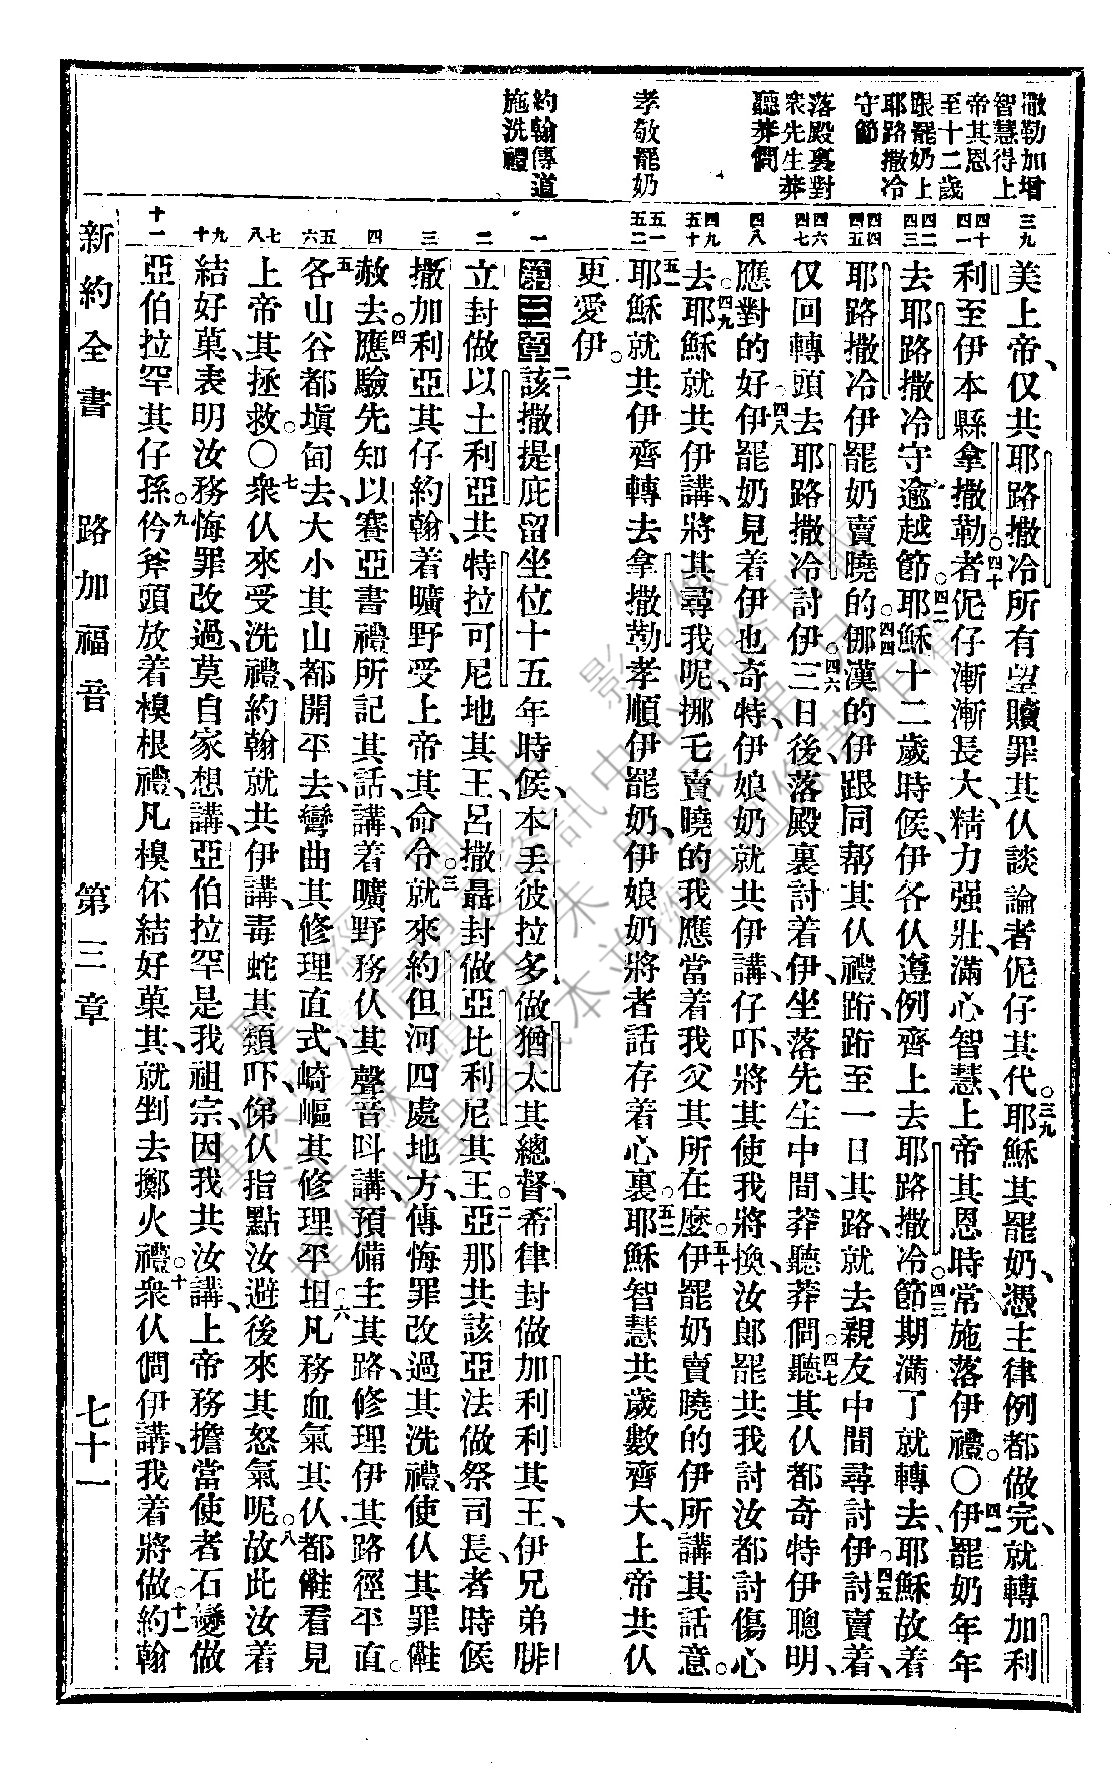 撒勒加增
智慧得上
帝其恩
至十二歲
跟罷奶上
耶路撒冷
守節
落殿裏對
衆先生莽
聽莽問
孝敬罷奶
約翰傳道
施洗禮
三九
四十
四一
四二
四三
四四
四五
四六
四七
四八
四九
五十
五一
五二
一
二
三
四
五
六
七
八
九
十
十一
美上帝、仅共耶路撒冷所有望贖罪其仈談論者伲仔其代。三九耶穌其罷奶、憑主律例都做完、就轉加利
利至伊本縣拿撒勒。四十者伲仔漸漸長大、精力强壯、滿心智慧、上帝其恩時常施落伊禮。〇四一伊罷奶年年
去耶路撒冷守逾越節。四二耶穌十二歲時候、伊各仈遵例齊上去耶路撒冷。四三節期滿了就轉去、耶穌故着
耶路撒冷、伊罷奶賣曉的。四四䎛漢的伊跟同帮其仈禮䟰、䟰至一日其路、就去親友中間尋討伊。四五討賣着、
仅回轉頭去耶路撒冷討伊。四六三日後、落殿裏討着伊、坐落先生中間、莽聽莽問。四七聽其仈都奇特伊聰明、
應對的好。四八伊罷奶見着伊也奇特、伊娘奶就共伊講、仔吓、將其使我將換、汝郎罷共我討汝都討傷心
去。四九耶穌就共伊講、將其尋我呢、挪乇賣曉的我應當着我父其所在麽。五十伊罷奶賣曉的伊所講其話意。
五一耶穌就共伊齊轉去拿撒勒孝順伊罷奶、伊娘奶將者話存着心裏。五二耶穌智慧共歲數齊大、上帝共仈
更愛伊。
第三章 一該撒提庇留坐位十五年時候、本丢彼拉多做猶太其總督、希律封做加利利其王、伊兄弟腓
立封做以土利亞共特拉可尼地其王、呂撒聶封做亞比利尼其王。二亞那共該亞法做祭司長、者時候
撒加利亞其仔約翰、着曠野受上帝其命令。三就來約但河四處地方、傳悔罪改過其洗禮、使仈其罪𠆧
赦去。四應驗先知以賽亞書禮所記其話、講、着曠野務仈其聲音叫講、預備主其路、修理伊其路徑平直。
五各山谷都塡匋去、大小其山都開平去、彎曲其修理直式、崎嶇其修理平坦。六凡務血氣其仈、都𠆧看見
上帝其拯救。〇七衆仈來受洗禮、約翰就共伊講、毒蛇其類吓、俤仈指點汝避後來其怒氣呢。八故此汝着
結好菓、表明汝務悔罪改過、莫自家想講、亞伯拉罕是我祖宗、因我共汝講、上帝務擔當使者石變做
亞伯拉罕其仔孫。九仱斧頭放着樌根禮、凡樌伓結好菓其、就剉去擲火禮。十衆仈問伊講、我着將做。十一約翰
新約全書 路加福音 第三章 七十一